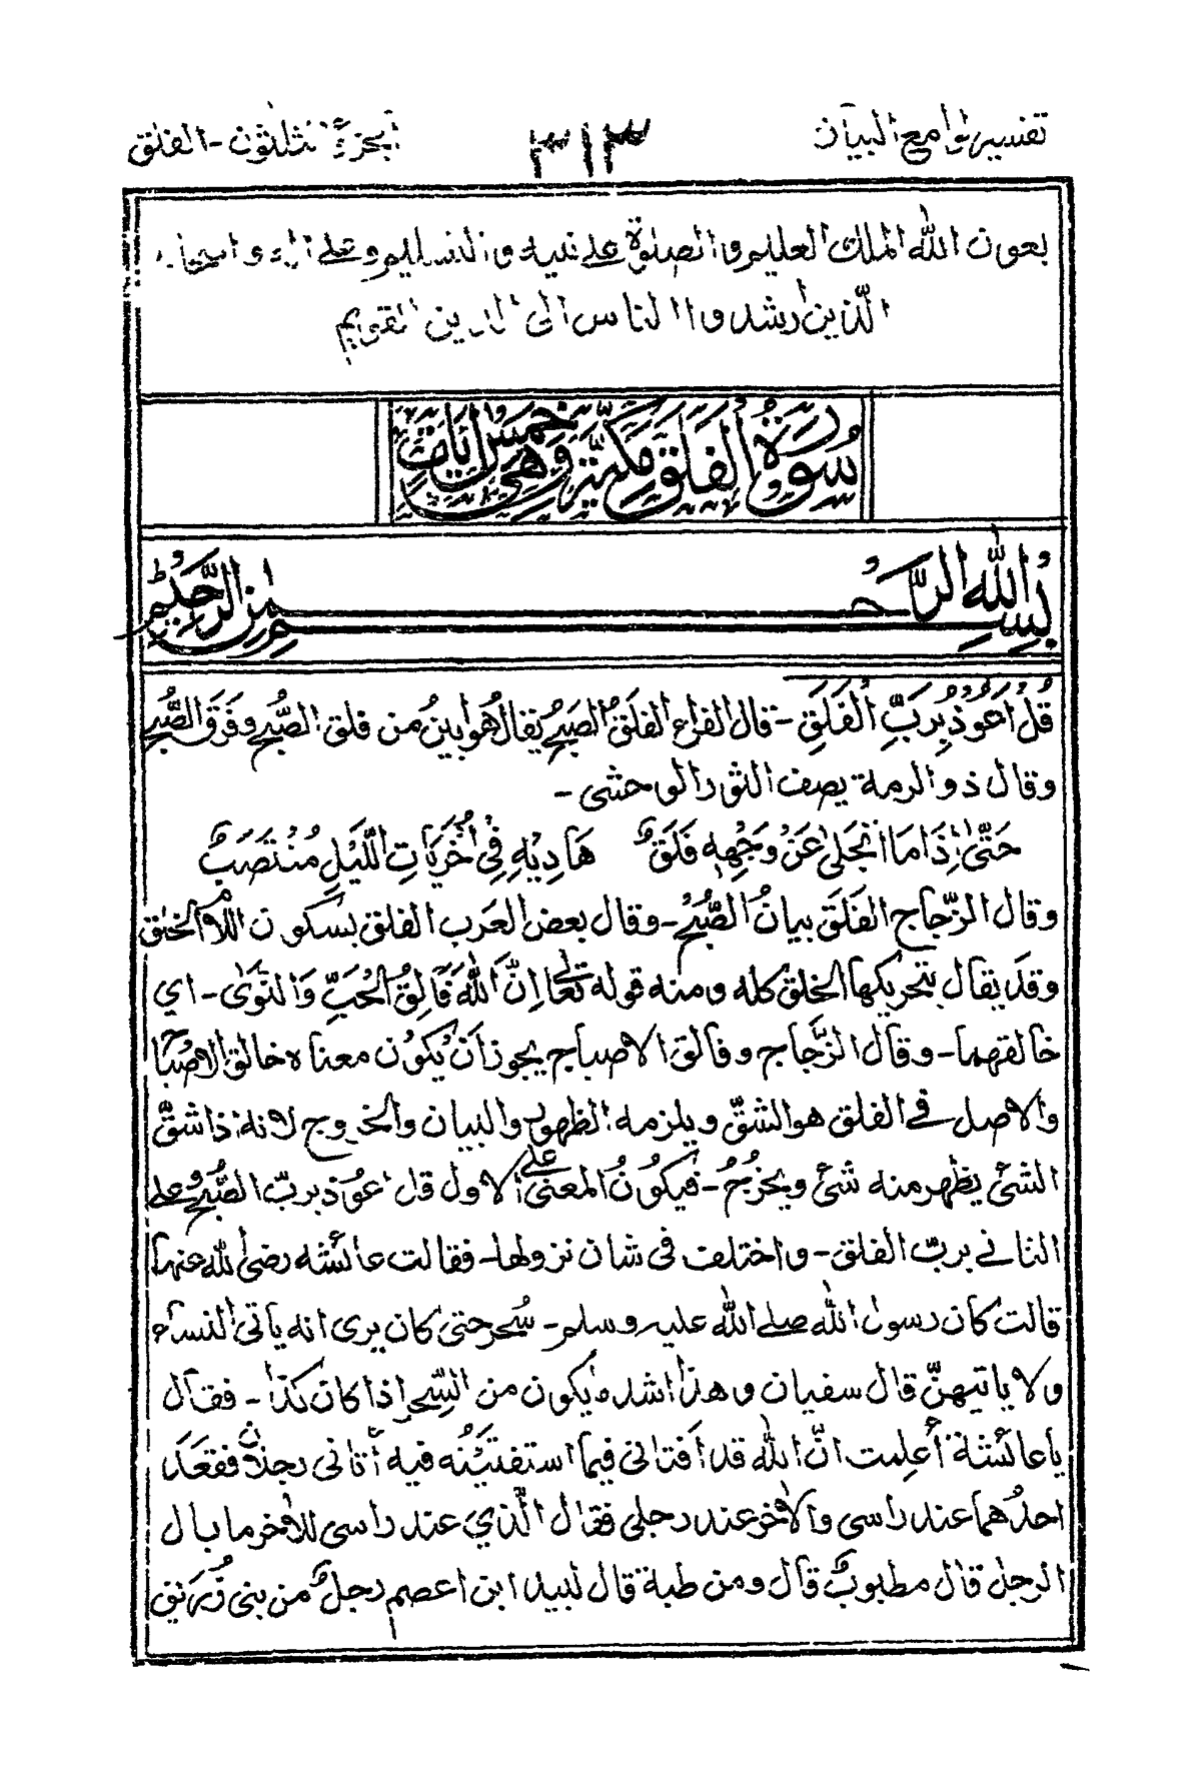 تفسير لوامع البيان ٣١٣ الجزء الثلثون - الفلق
بعون الله الملك العليم والصلوة على نبيه والتسليم وعلى آله واصحابه
الذين ارشدوا الناس الى الدين القويم
سُورَةُ الفَلَقِ مَكِّيَّةٌ وَهِيَ خَمْسُ اٰيَاتٍ
بِسْمِ اللهِ الرَّحْمٰنِ الرَّحِيْمِ
قُلْ اَعُوْذُ بِرَبِّ الْفَلَقِ - قال الفراء الفَلَقُ الصُبحُ يقال هُوابينُ من فلق الصُّبحِ وفَرَقِ الصُّبحِ
وقال ذو الرمة يصف الثور الوحشى -
حَتّٰى اِذَا مَا انْجَلٰى عَنْ وَجْهِهٖ فَلَقٌ هَادِيْهِ فِيْ اُخْرَيَاتِ اللَّيْلِ مُنْتَصَبٌ
وقال الزّجاج الفَلَق بيانُ الصُّبْحِ - وقال بعض العَرَب الفلق بسكون اللام الخلق
وقد يقال بتحريكها الخلق كله ومنه قوله تعالى اِنَّ اللهَ فَالِقُ الْحَبِّ وَالنَّوٰى - اي
خالقهما - وقال الزَّجاج وفالق الاصباح يجوز اَنْ يكوُن معناه خالق الاصباح
والاصل في الفلق هو الشقّ ويلزمه الظهور والبيان والخروج لانه اذا شقّ
الشئ يظهر منه شئ ويخرُجُ - فيكوُنُ المعنى على الاول قل اعوُذ بربّ الصُّبحِ وعلى
الثانے بربّ الفلق - واختلف فى شان نزولها - فقالت عائشه رضى الله عنها
قالت كان رسول الله صلے الله عليه وسلم - سُحر حتى كان يرى انه ياتى النساء
ولا ياتيهنّ قال سفيان وهذا اشد ما يكون من السِّحر اذا كان كذا - فقال
يا عائشة أعلمت انّ الله قد افتانى فيما استفتيْتُه فيه أتانى رجلان فقَعَد
احدُهما عند راسى والاٰخر عند رجلى فقال الّذي عند راسى للاٰخر ما بال
الرجل قال مطبوبٌ قال ومن طبهٗ قال لبيد ابن اعصم رجلٌ من بنى زُرَيق